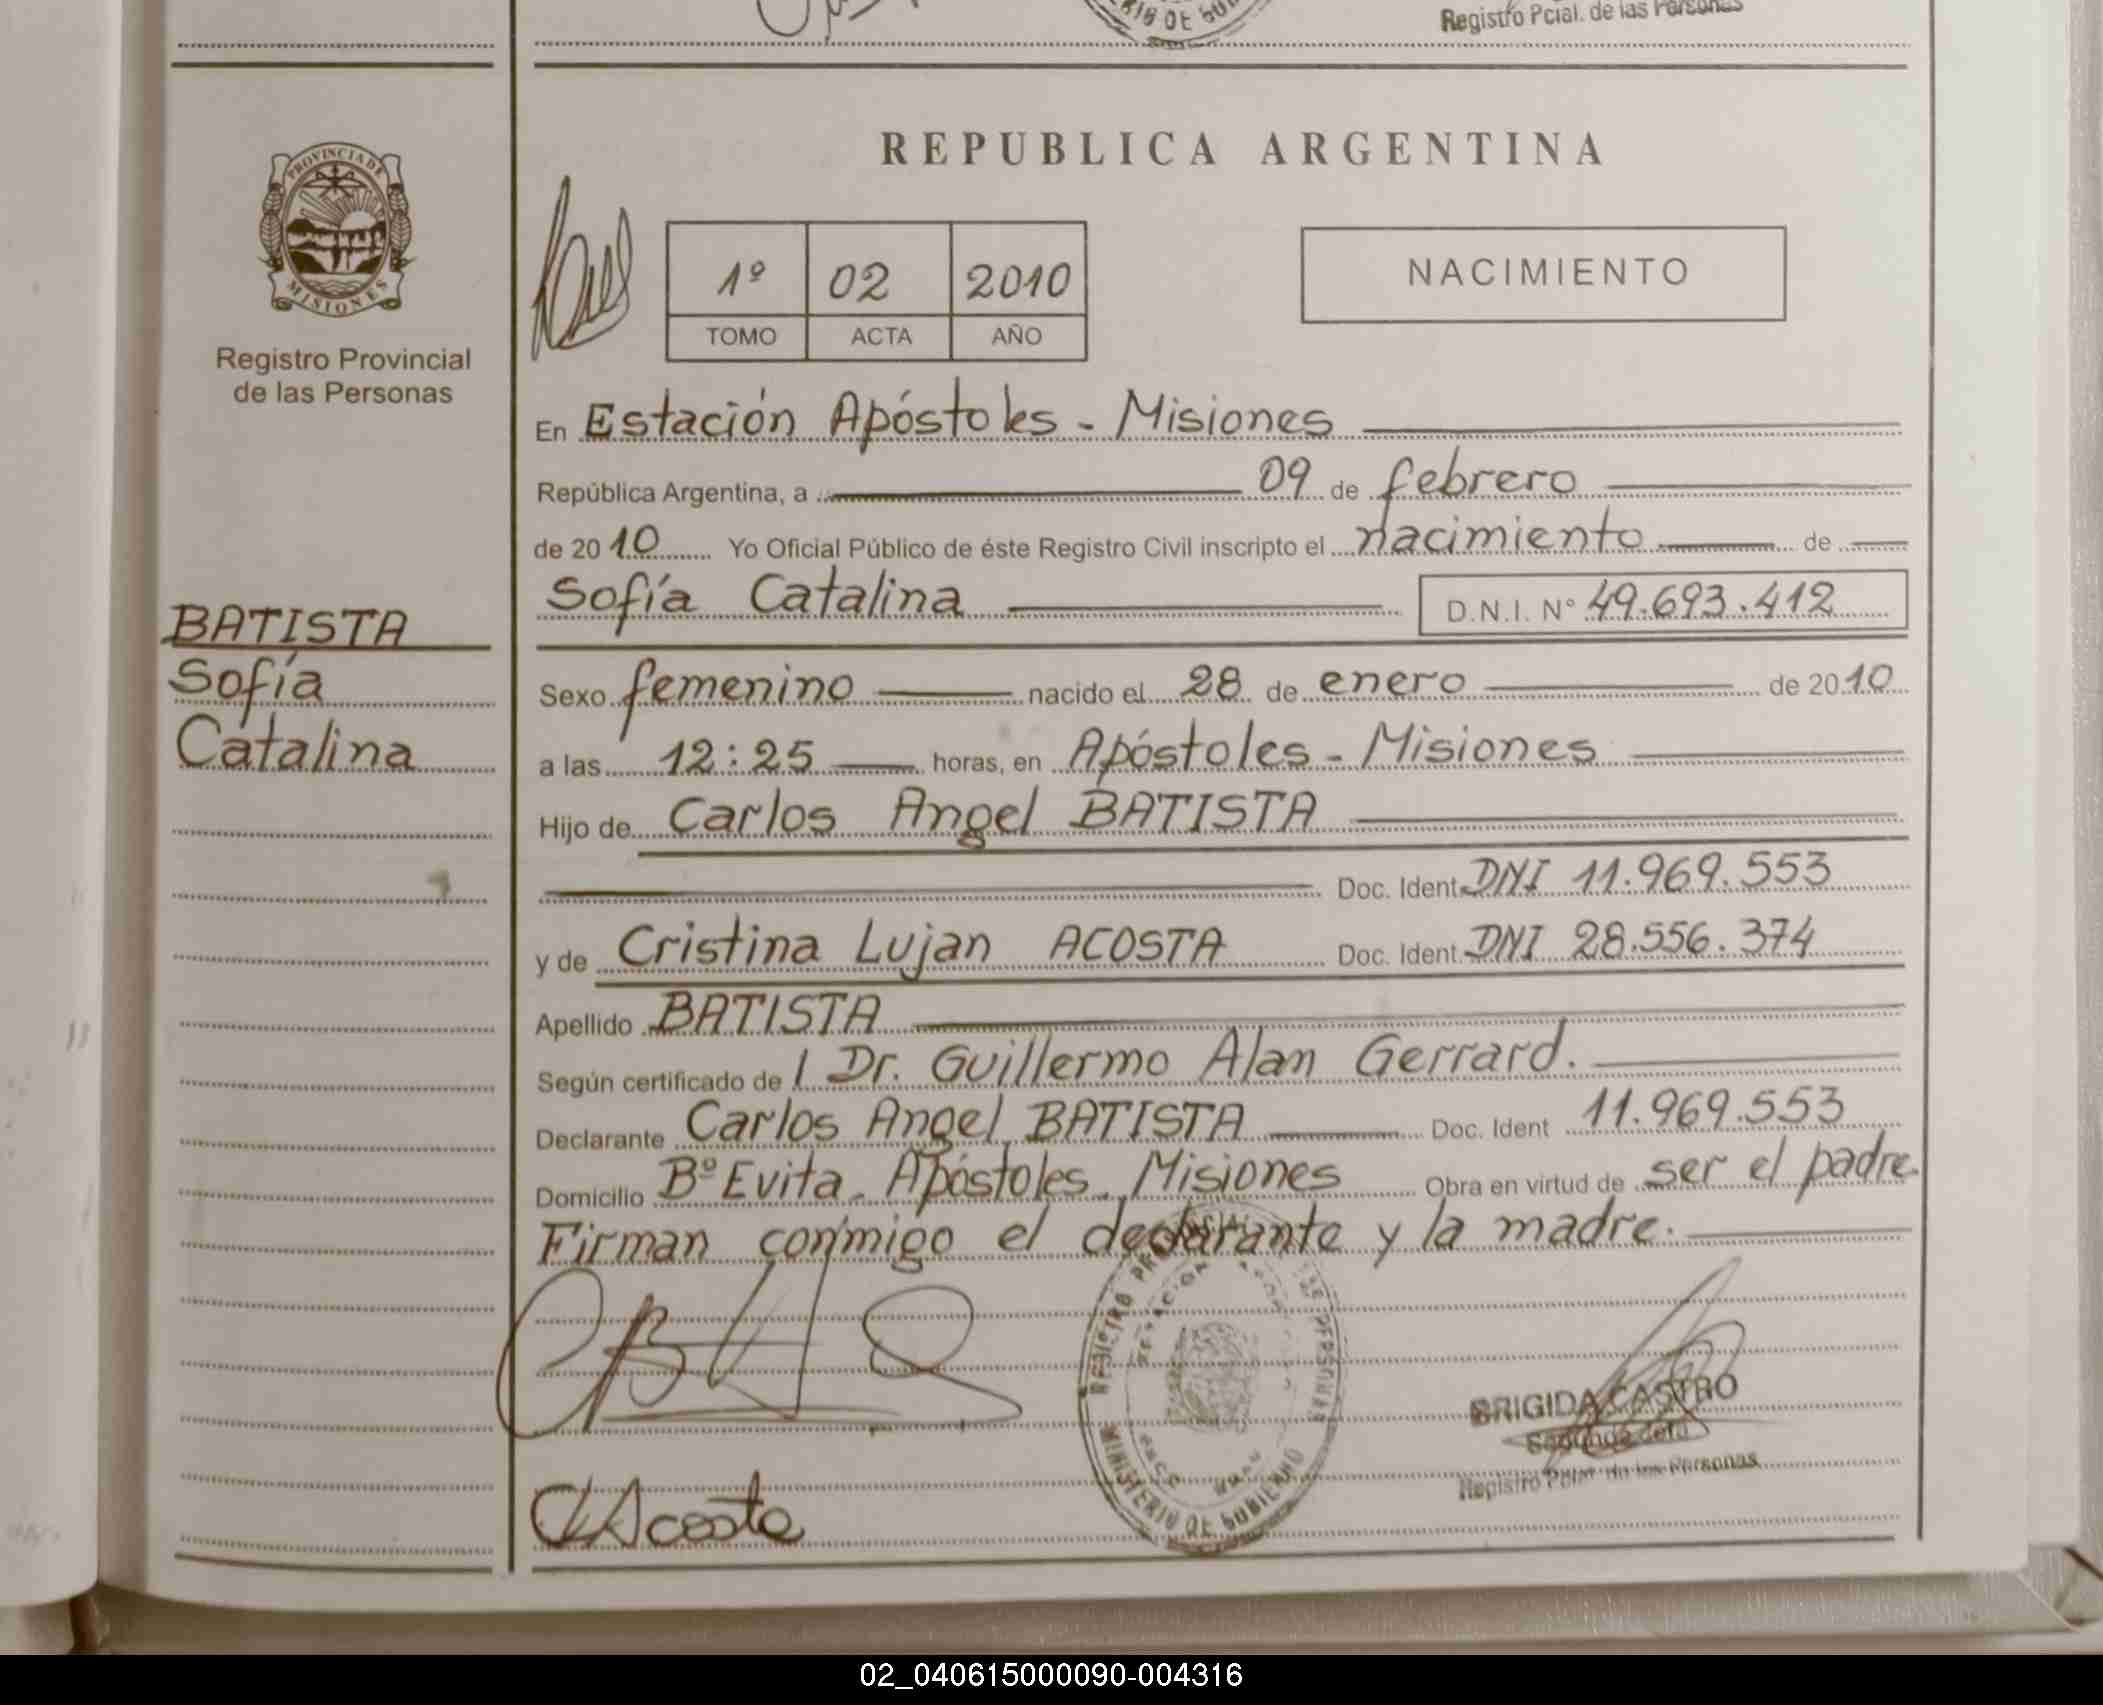 Registro Pcial. de las Personas
REPUBLICA ARGENTINA
PROVINCIA DE
MISIONES
Registro Provincial
de las Personas
1º 02 2010
TOMO ACTA AÑO
NACIMIENTO
En Estación Apóstoles - Misiones
República Argentina, a 09 de febrero
de 2010 Yo Oficial Público de éste Registro Civil inscripto el nacimiento de
Sofía Catalina D.N.I. N° 49.693.412
BATISTA
Sofía
Catalina
Sexo femenino nacido el 28 de enero de 2010
a las 12:25 horas, en Apóstoles - Misiones
Hijo de Carlos Angel BATISTA
Doc. Ident. DNI 11.969.553
y de Cristina Lujan ACOSTA Doc. Ident. DNI 28.556.374
Apellido BATISTA
Según certificado de l Dr. Guillermo Alan Gerrard.
Declarante Carlos Angel BATISTA Doc. Ident 11.969.553
Domicilio Bº Evita - Apóstoles - Misiones Obra en virtud de ser el padre.
Firman conmigo el declarante y la madre.
REGISTRO DE PERSONAS
MINISTERIO DE GOBIERNO
BRIGIDA CASTRO
Registro Pcial. de las Personas
CLAcosta
02_040615000090-004316